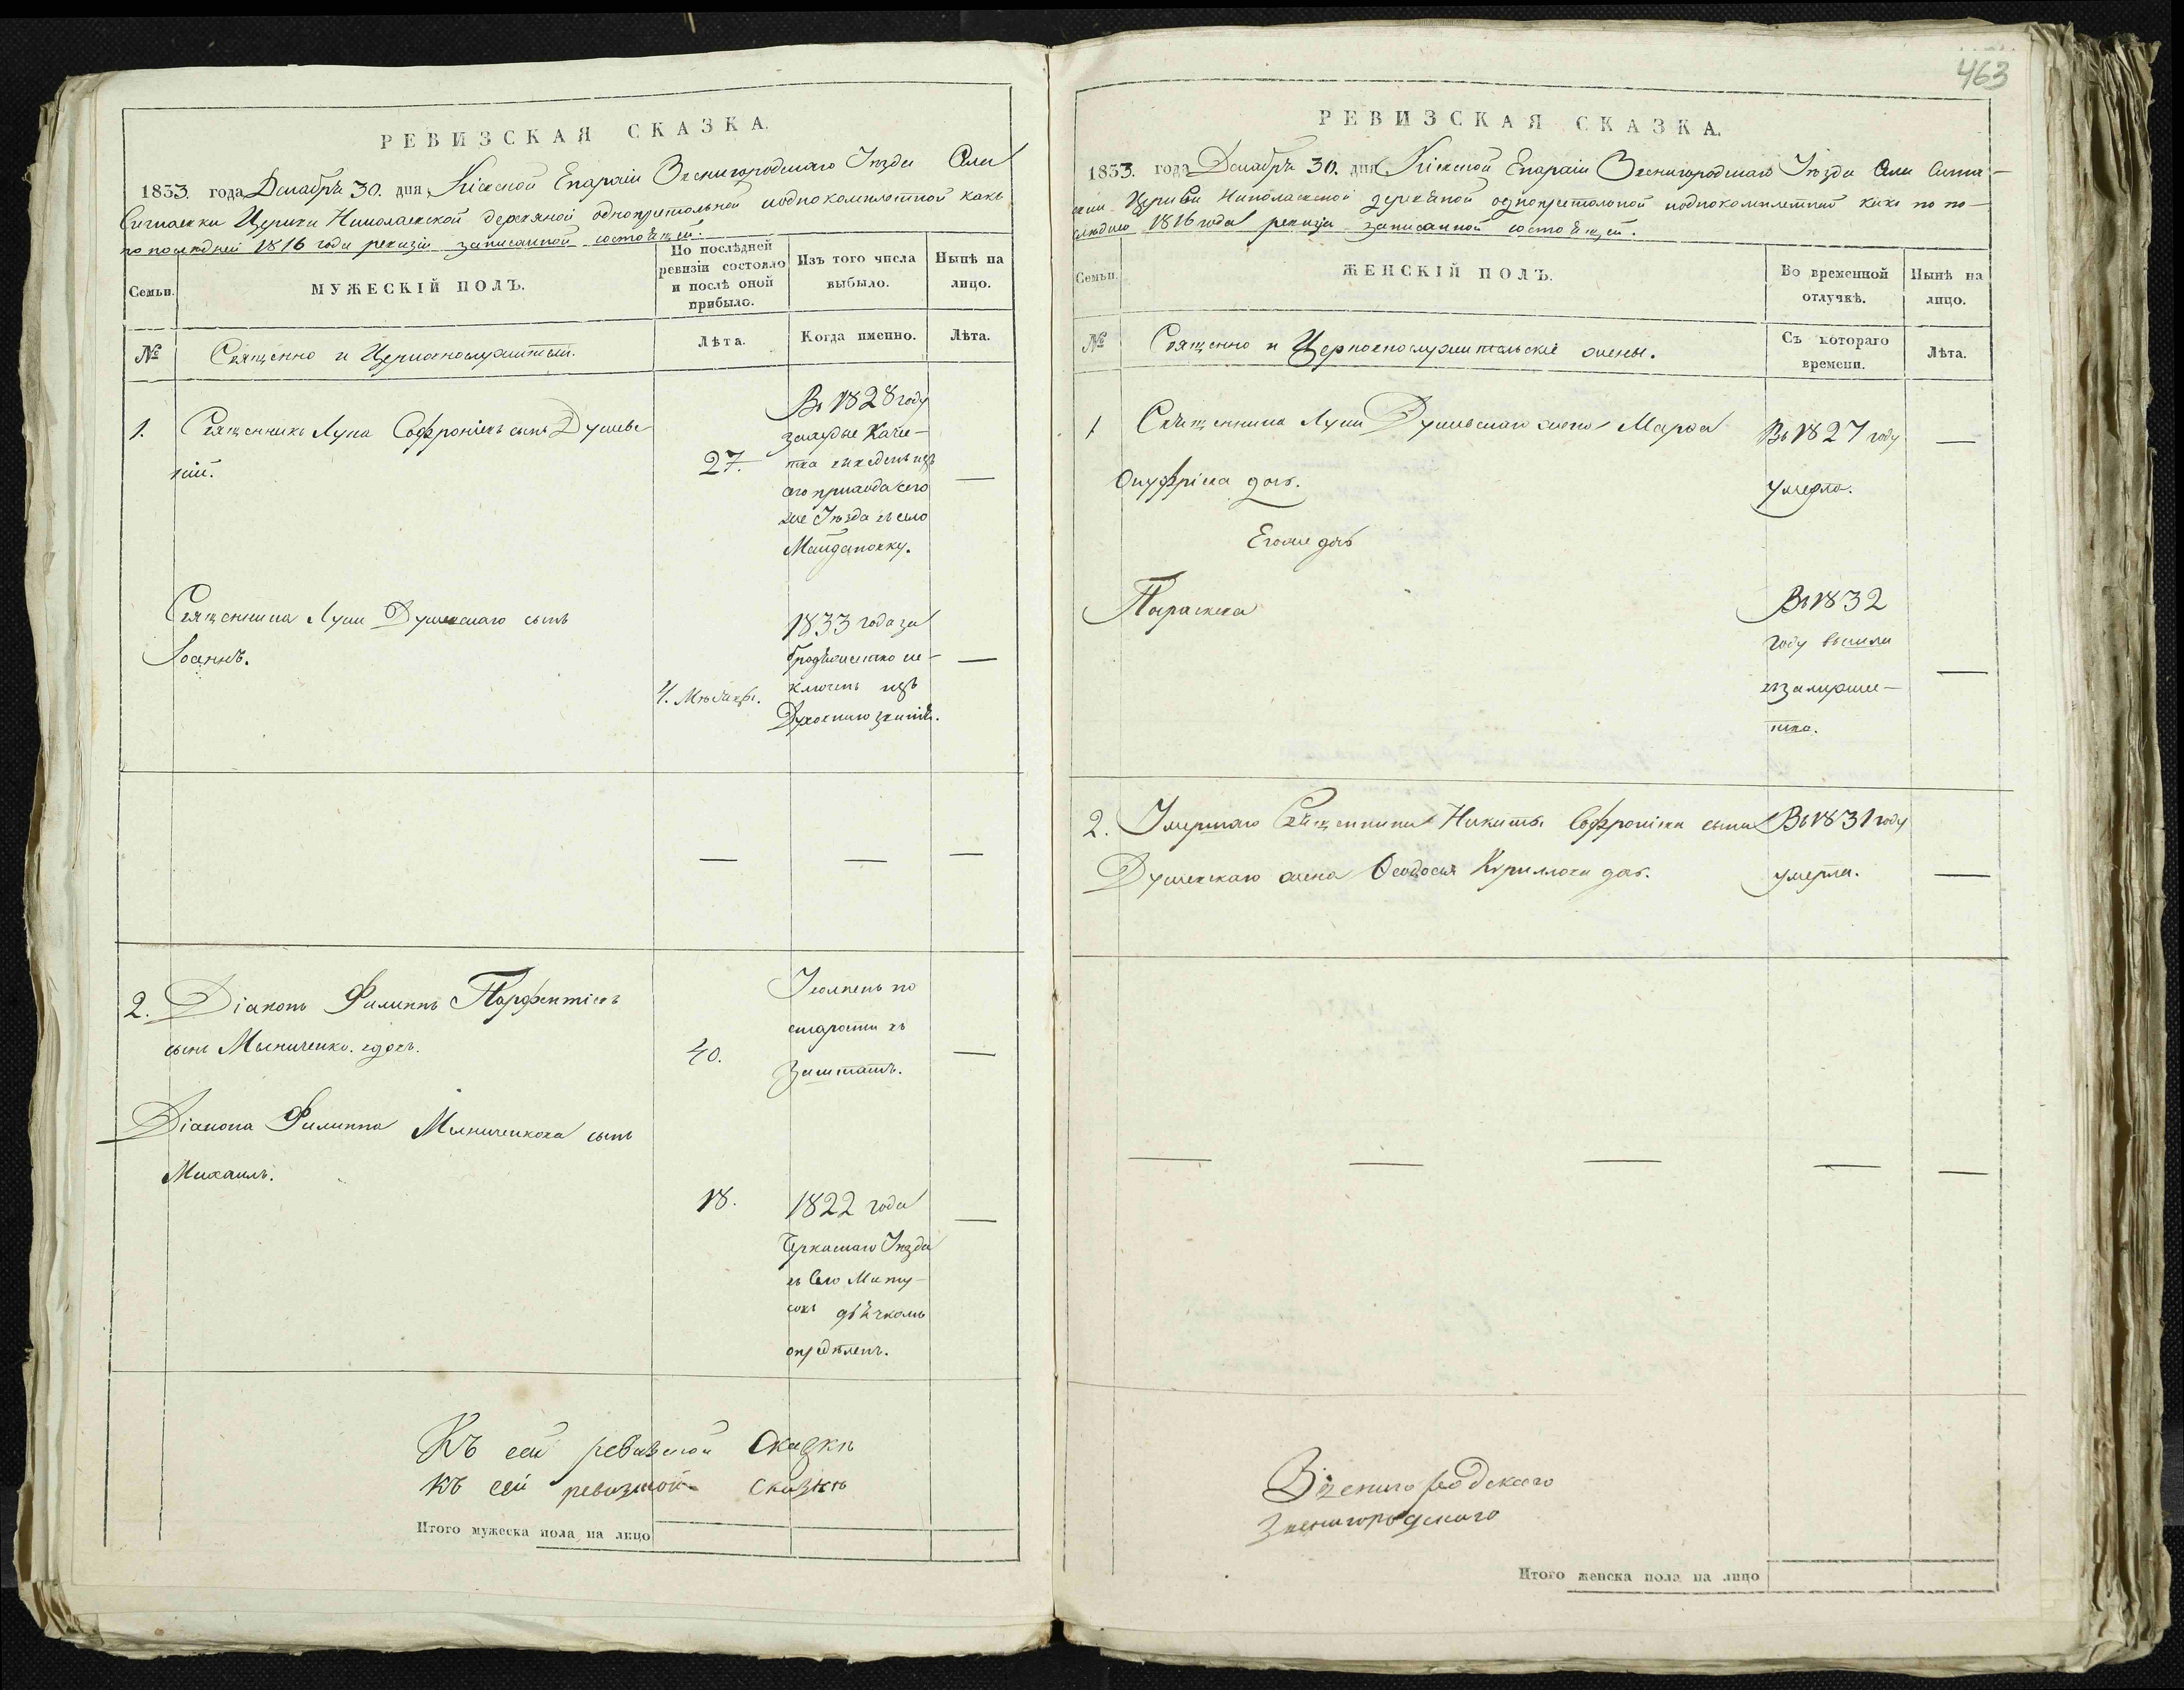 РЕВИЗСКАЯ СКАЗКА.
1833. года Декабря 30. дня Кіевской Епархіи Звенигородскаго Уѣзда Села
Церкви Николаевской деревяной однопрестольной и однокомплетной какъ
по последней 1816 года ревизіи записанной состоящей.
Семьи.
МУЖЕСКІЙ ПОЛЪ.
По послѣдней
ревизіи состояло
и послѣ оной
прибыло.
Изъ того числа
выбыло.
Нынѣ на
лицо.
№
Священно и Церковнослужители.
Лѣта.
Когда именно.
Лѣта.
1.
Священникъ Лука Софроніевъ сынъ Душев-
скій.
27.
Въ 1828 году
за худые каче-
ства выведенъ изъ
сего прихода сего
же Уѣзда въ село
Майдановку.
—
Священника Луки Душевскаго сынъ
Іоаннъ.
4. Мѣсяцы.
1833 года за
бродяжество ис-
ключенъ изъ
Духовнаго званія.
—
— — —
2.
Діаконъ Филиппъ Парфентіевъ
сынъ Мельниченко. вдовъ.
40.
Уволенъ по
старости въ
Заштатъ.
—
Діакона Филиппа Мельниченкова сынъ
Михаилъ.
18.
1822 года
Черкаскаго Уѣзда
въ Село
дьячкомъ
опредѣленъ.
—
Къ сей ревизской Сказкѣ
къ сей ревизской Сказкѣ
Итого мужеска пола на лицо
463
РЕВИЗСКАЯ СКАЗКА.
1833. года Декабря 30. дня Кіевской Епархіи Звенигородскаго Уѣзда Села
Церкви Николаевской деревяной однопрестольной и однокомплетной какъ по по-
слѣдней 1816 года ревизіи записанной состоящей.
Семьи.
ЖЕНСКІЙ ПОЛЪ.
Во временной
отлучкѣ.
Нынѣ на
лицо.
№
Священно и Церковнослужительскіе жены.
Съ котораго
времени.
Лѣта.
1
Священника Луки Душевскаго жена Марфа
Онуфріева дочь.
Въ 1827 году
умерла.
—
Егоже дочь
Параскева
Въ 1832
году вышла
въ замуже-
ство.
—
2.
Умершаго Священника Никиты Софроніева сына
Душевскаго жена Ѳеодосія Кириллова дочь.
Въ 1831 году
умерла.
—
— — — — —
Звенигородскаго
Звенигородскаго
Итого женска пола на лицо